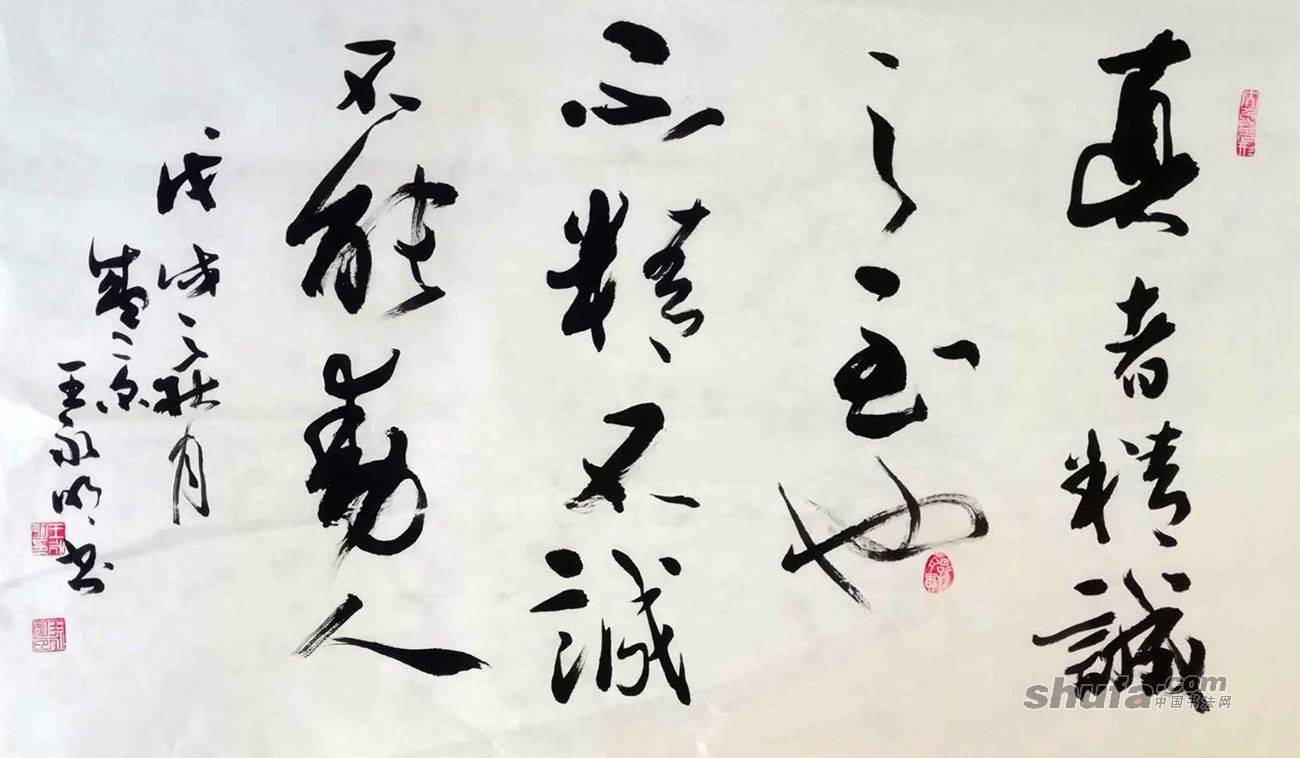 真者精誠
之至也
不精不誠
不能動人
戊戌之秋月
王永明书
shufa.com
中国书法网